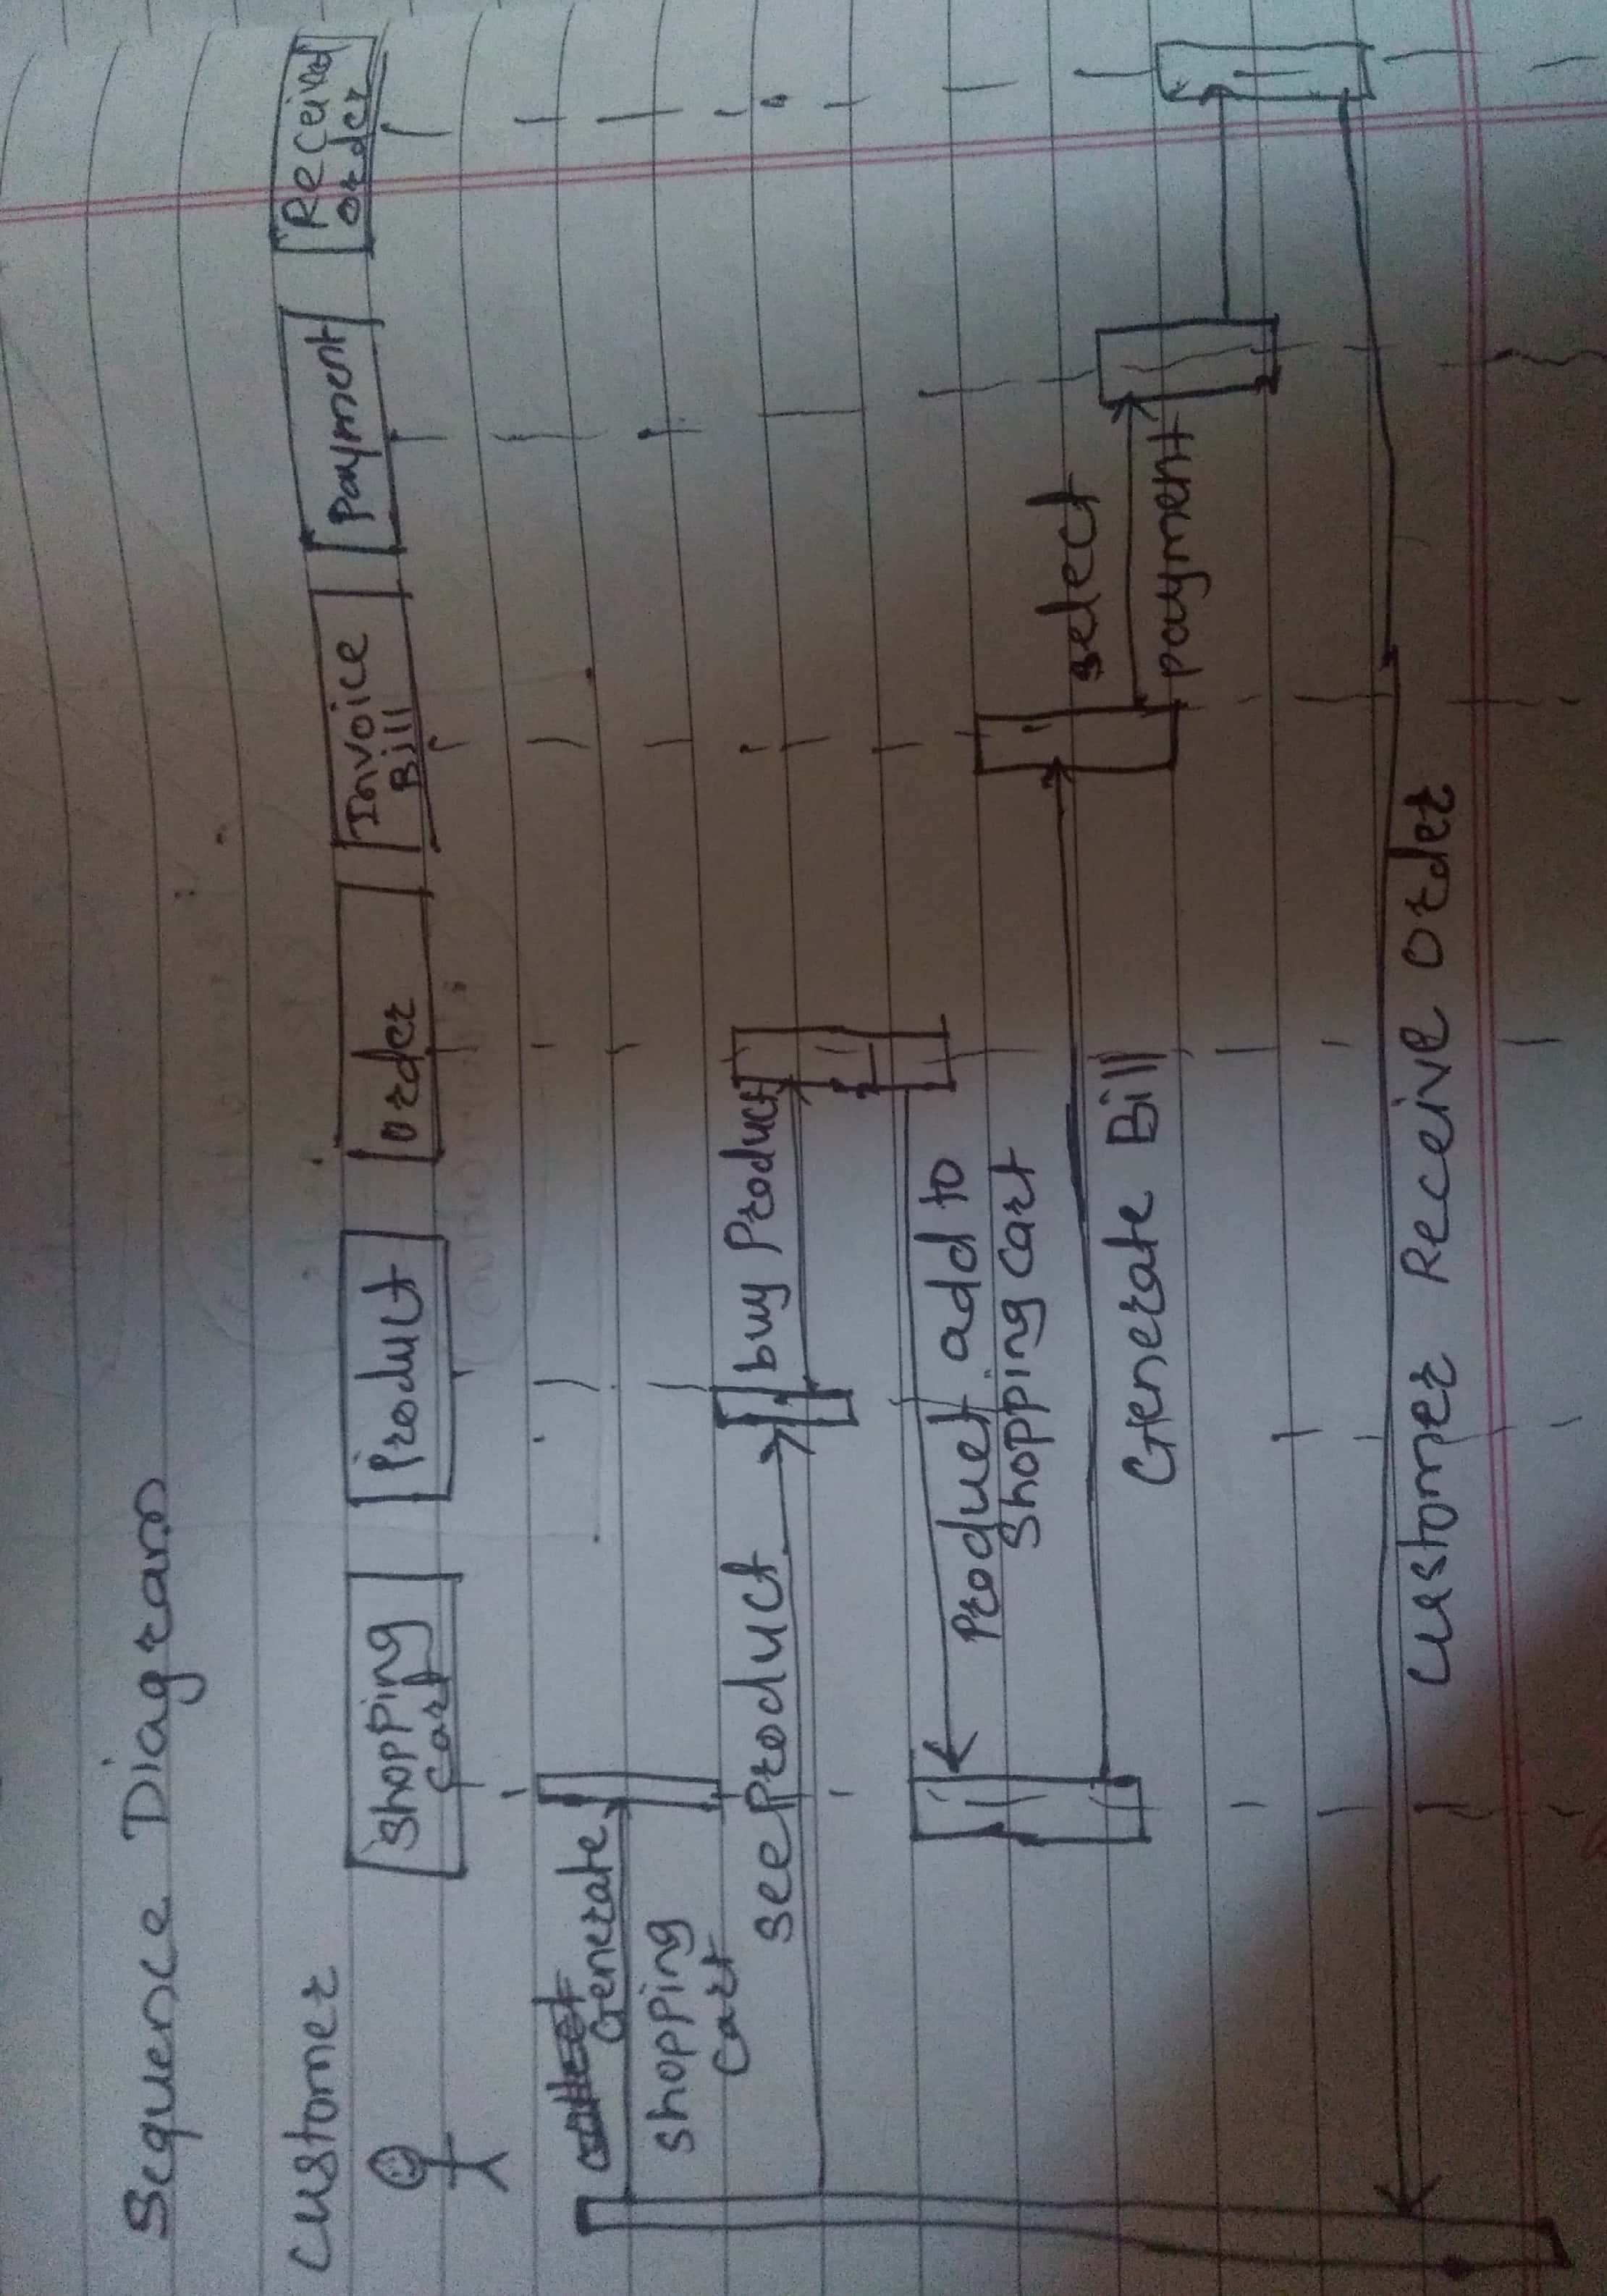 Sequence Diagram
Customer
Shopping
Cart
Product
Order
Invoice
Bill
Payment
Received
Order
Generate
Shopping
Cart
see Product
buy Product
Product add to
Shopping Cart
Generate Bill
select
payment
Customer Receive Order